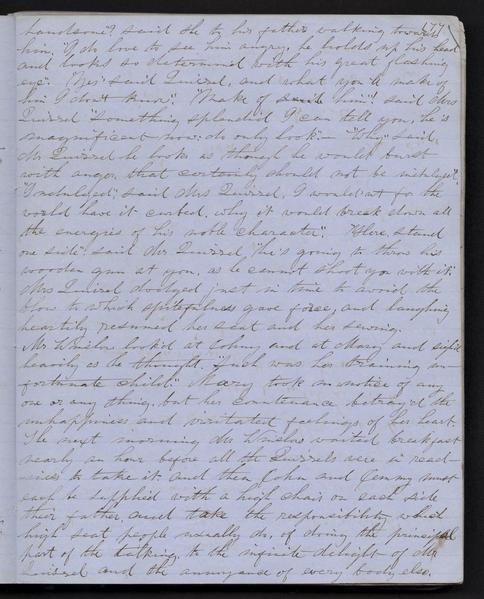 177
handsome? said she to his father walking toward
him, "I do love to see him angry, he holds up his head
and looks so determined with his great flashing
eye". "Yes" said Quirrel, and what you'll make of
him I don't know". "Make of him"! said Mrs
Quirrel "something splendid I can tell you, he's
magnificent now, do only look" - "Why" said
Mr Quirrel he looks as though he would burst
with anger, that certainly should not be indulged"
"Indulged", said Mrs Quirrel, I wouldn't for the
world have it curbed, why it would break down all
the energies of his noble character". "Here, stand
one side" said Mr Quirrel "he's going to throw his
wooden gun at you, as he cannot shoot you with it"
Mrs Quirrel dodged just in time to avoid the
blow to which spitefulness gave force, and laughing
heartily resumed her seat and her sewing.
Mr Winslow look'd at Johny and at Mary and sigh'd
heavily as he thought. "Such was her training un-
fortunate child." Mary took no notice of any
one or any thing, but her countenance betrayed the
unhappiness and irritated feelings of her heart.
The next morning Mr Winslow waited breakfast
nearly an hour before all the Quirrels were in read-
iness to take it. And then John and Jemmy must
each be supplied with a high chair on each side
their father, and take the responsibility which
high seat people usually do, of doing the principal
part of the talking, to the infinite delight of Mr
Quirrel and the annoyance of every body else.